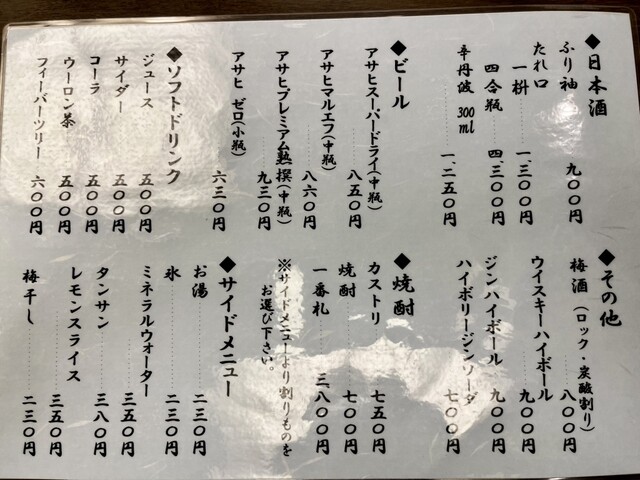 ◆日本酒
ふり袖 九〇〇円
たれ口
一枡 一、三〇〇円
四合瓶 四、三〇〇円
辛丹波 300ml 一、二五〇円
◆ビール
アサヒスーパードライ(中瓶) 八五〇円
アサヒマルエフ(中瓶) 八六〇円
アサヒプレミアム熟撰(中瓶) 九三〇円
アサヒ ゼロ(小瓶) 六三〇円
◆ソフトドリンク
ジュース 五〇〇円
サイダー 五〇〇円
コーラ 五〇〇円
ウーロン茶 五〇〇円
フィーバーツリー 六〇〇円
◆その他
梅酒(ロック・炭酸割り) 八〇〇円
ウイスキーハイボール 九〇〇円
ジンハイボール 九〇〇円
ハイボリージンソーダ 七〇〇円
◆焼酎
カストリ 七五〇円
焼酎 七〇〇円
一番札 三、八〇〇円
※サイドメニューより割りものを
お選び下さい。
◆サイドメニュー
お湯 二三〇円
氷 二三〇円
ミネラルウォーター 三五〇円
タンサン 三八〇円
レモンスライス 三五〇円
梅干し 二三〇円